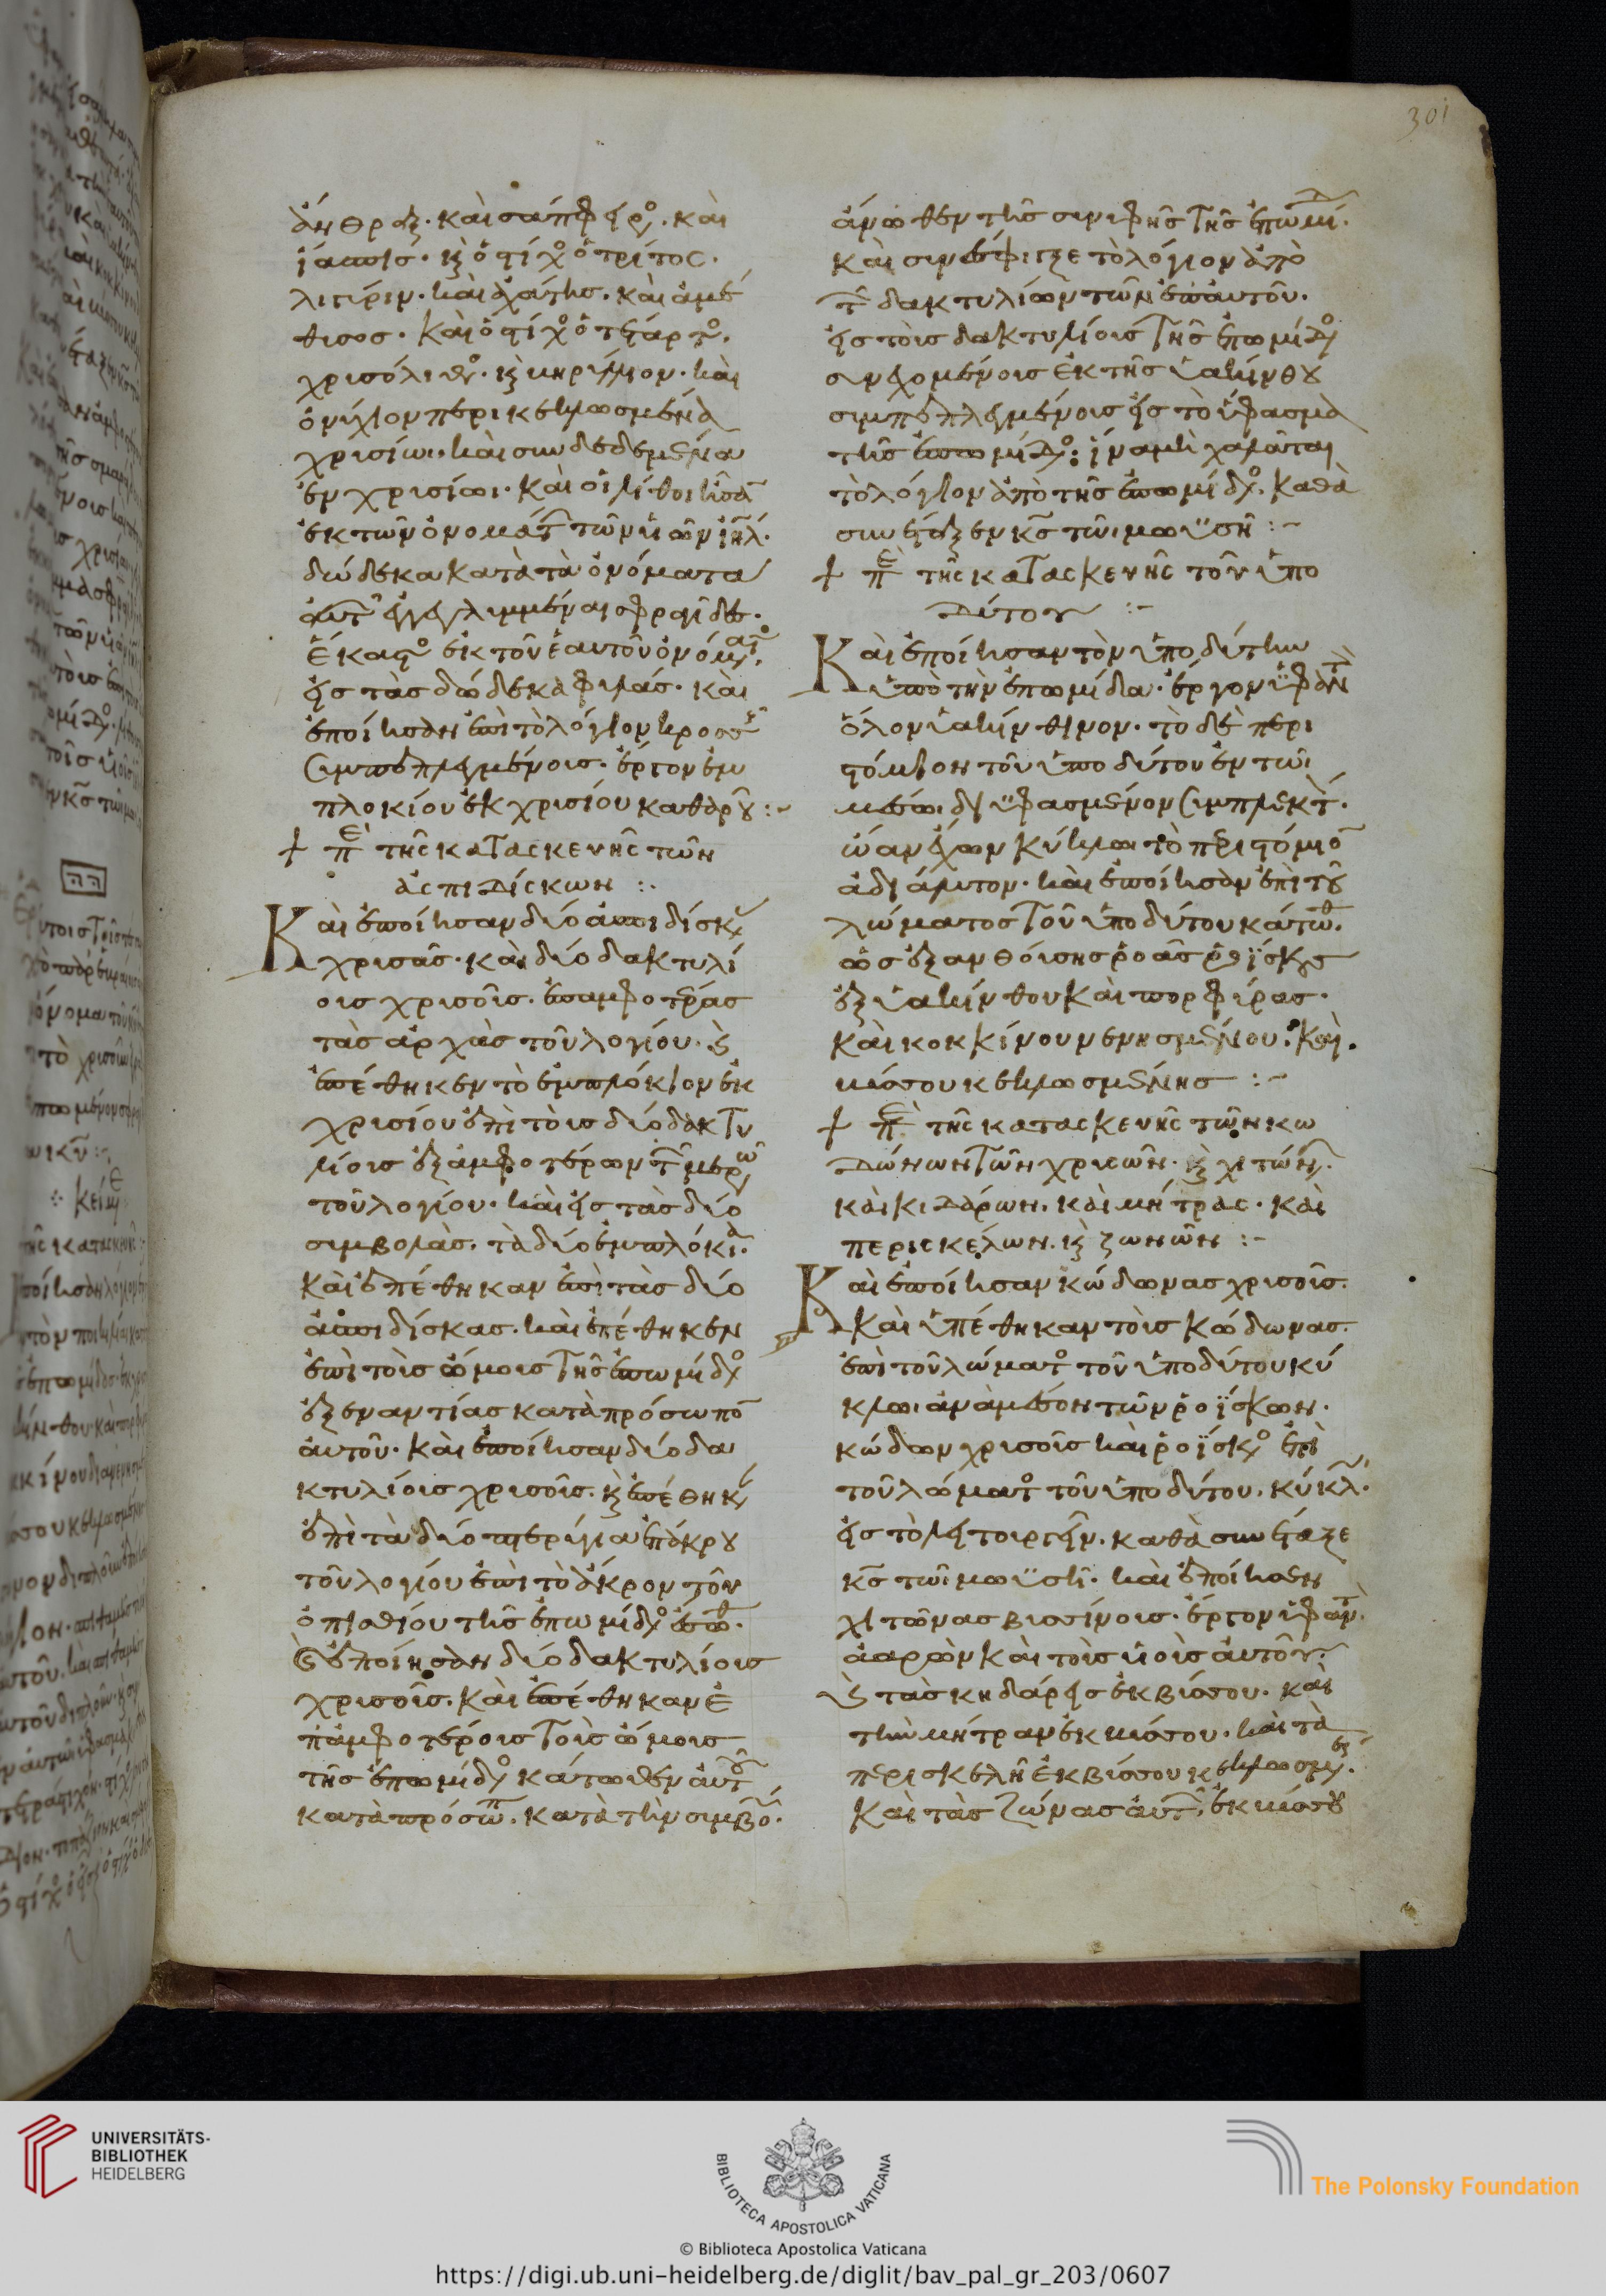 301
ἄνθραξ· καὶ σάπφειρο· καὶ
ἴασπις· κ ὁ στίχο ὁ τρίτος·
λιγύριν· καὶ ἀχάτης· καὶ ἀμέ
θισος· καὶ ὁ στίχο ὁ τέταρτο·
χρισόλιθ· κ κηρίλλιον· καὶ
ὀνίχιον περικεκλωσμένα
χρισίωι· καὶ συνδεδεμένα
ἐν χρισίωι· καὶ οἱ λίθοι ἦσα
ἐκ τῶν ὀνομάτ τῶν ὑιῶν ιηλ·
δώδεκα κατὰ τὰ ὀνόματα
αυτ ἐγγεγλιμμέναι σφραγίδε·
ἕκαστο ἐκ τοῦ ἑαυτοῦ ὀνόματ·
εἰς τὰς δώδεκα φιλάς· καὶ
ἐποίησαν ἐπὶ τὸ λόγιον κροσσ
συμπεπλεγμένοις· ἔργον ἐμ
πλοκίου ἐκ χρισίου καθαροῦ :-
+ πε τῆς κατασκευῆς τῶν
ἀσπιδίσκων :·
Καὶ ἐποίησαν δύο ἀσπιδίσκ
χρισᾶς· καὶ δύο δακτυλί
οις χρισοῖς· ἐπαμφοτέρας
τὰς ἀρχὰς τοῦ λογίου· κ
ἐπέθηκεν τὸ ἐμπλόκιον ἐκ
χρισίου ἐπὶ τοῖς δύο δακτυ
λίοις ἐξ ἀμφοτέρων τ μερῶ
τοῦ λογίου· καὶ εἰς τὰς δύο
σιμβολὰς· τὰ δύο ἐμπλόκια·
καὶ ἐπέθηκαν ἐπὶ τὰς δύο
ἀσπιδίσκας· καὶ ἐπέθηκεν
ἐπὶ τοῖς ὤμοις τῆς ἐπωμίδο
ἐξεναντίας κατὰ πρόσωπο
αὐτοῦ· καὶ ἐποίησαν δύο δα
κτυλίοις χρισοῖς· κ ἐπέθηκ
ἐπὶ τὰ δύο πτερίγια ἐπάκρου
τοῦ λογίου ἐπὶ τὸ ἄκρον τοῦ
ὀπισθίου τῆς ἐπωμίδο ἔσωθ·
κ ἐποίησαν δύο δακτυλίοις
χρισοῖς· καὶ ἐπέθηκαν ἐ
παμφοτέροις τοῖς ὤμοις
τῆς ἐπωμίδο κάτωθεν αὐτ
κατὰ πρόσωπ· κατὰ τὴν σιμβο·
ἄνωθεν τῆς σινιφῆς τῆς ἐπωμίδ·
καὶ σινέσφιγξε τὸ λόγιον ἀπὸ
τ δακτυλίων τῶν ἐπ αὐτοῦ·
εἰς τοὺς δακτυλίοις τῆς ἐπωμίδο
συνεχομένοις ἐκ τῆς ὑακίνθου
συμπεπλεγμένοις εἰς τὸ ὕφασμα
τῆς ἐπωμίδο· ἵνα μὴ χαλᾶται
τὸ λόγιον ἀπὸ τῆς ἐπωμίδ· καθὰ
συνέταξεν κς τῶι μωϋσῆ :-
+ πε τῆς κατασκευῆς τοῦ ὑπο
δύτου :-
Καὶ ἐποίησαν τὸν ὑποδύτην
ὑπὸ τὴν ἐπωμίδα· ἔργον ὑφαντ
ὅλον ὑακίνθινον· τὸ δὲ περι
στόμιον τοῦ ὑποδύτου ἐν τῶι
μέσωι διϋφασμένον συμπλεκτ·
ὤαν ἔχων κύκλωι τὸ περιστόμιο
ἀδιάλυτον· καὶ ἐποίησαν ἐπὶ τοῦ
λώματος τοῦ ὑποδύτου κάτωθ·
ὡς ἐξανθούσης ῥοᾶς ῥοϊσκ
ἐξ ὑακίνθου καὶ πορφίρας·
καὶ κοκκίνου νενησμένου· καὶ
βύσσου κεκλωσμένης :-
+ πε τῆς κατασκευῆς τῶν κω
δώνων τῶν χρισῶν· κ χιτών·
καὶ κιδάρων· καὶ μήτρας· καὶ
περισκέλων· κ ζωνῶν :-
Καὶ ἐποίησαν κώδωνας χρισοῖς·
καὶ ὑπέθηκαν τοῖς κώδωνας·
ἐπὶ τοῦ λώματο τοῦ ὑποδύτου κύ
κλωι ἀνάμεσον τῶν ῥοΐσκων·
κώδων χρισοῖς καὶ ῥοΐσκο ἐπὶ
τοῦ λώματο τοῦ ὑποδύτου· κύκλ·
εἰς τὸ λειτουργεῖν· καθὰ συνέταξε
κς τῶι μωϋσῆ· καὶ ἐποίησεν
χιτῶνας βισσίνοις· ἔργον ὑφαντ·
ἀαρὼν καὶ τοῖς ὑιοῖς αὐτοῦ·
κ τὰς κηδάρεις ἐκ βίσσου· καὶ
τὴν μήτραν ἐκ βύσσου· καὶ τὰ
περισκελῆ ἐκ βύσσου κεκλωσμεν·
Καὶ τὰς ζώνας αὐτ· ἐκ βύσσου
UNIVERSITÄTS-
BIBLIOTHEK
HEIDELBERG
BIBLIOTECA APOSTOLICA VATICANA
The Polonsky Foundation
© Biblioteca Apostolica Vaticana
https://digi.ub.uni-heidelberg.de/diglit/bav_pal_gr_203/0607